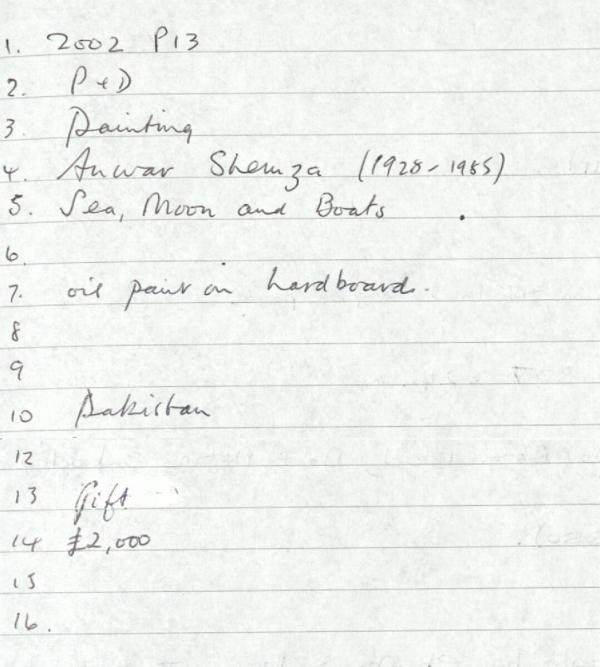 1. 2002 P13
2. P+D
3. Painting
4. Anwar Shemza (1928-1985)
5. Sea, Moon and Boats
6.
7. oil paint on hardboard.
8
9
10 Pakistan
12
13 Gift
14 £2,000
15
16.